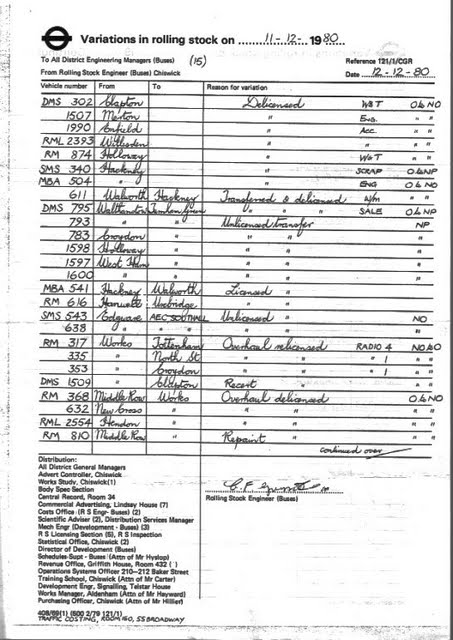 Variations in rolling stock on 11-12- 1980
To All District Engineering Managers (Buses) (15) Reference 121/1/CGR
From Rolling Stock Engineer (Buses) Chiswick Date 12-12-80
Vehicle number From To Reason for variation
DMS 302 Clapton Delicensed W&T O&NO
1507 Merton " Eng. " "
1990 Enfield " Acc. " "
RML 2393 Willesden " " "
RM 874 Holloway " W&T " "
SMS 340 Hackney " SCRAP O&NP
MBA 504 " " ENG O&NO
611 Walworth Hackney Transferred & delicensed W/m " "
DMS 795 Walthamstow Turnham Green " " " SALE O&NP
793 " " Unlicensed transfer NP
783 Croydon " " " "
1598 Holloway " " " "
1597 West Ham " " " "
1600 " " " " "
MBA 541 Hackney Walworth Licensed "
RM 616 Hanwell Uxbridge " "
SMS 543 Edgware AEC SOUTHALL Unlicensed " NO
638 " " " " "
RM 317 Works Tottenham Overhaul relicensed RADIO 4 NO&O
335 " North St " " " 1 " "
353 " Croydon " " " 1 " "
DMS 1509 " Clapton Recert " " "
RM 368 Middle Row Works Overhaul delicensed O&NO
632 New Cross " " " " "
RML 2554 Hendon " " " " "
RM 810 Middle Row " Repaint " " "
continued over
Distribution:
All District General Managers
Advert Controller, Chiswick
Works Study, Chiswick(1)
Body Spec Section
Central Record, Room 34
Commercial Advertising, Lindsay House (7)
Costs Office (R S Engr- Buses) (2)
Scientific Adviser (2), Distribution Services Manager
Mech Engr (Development - Buses) (3)
R S Licensing Section (5), R S Inspection
Statistical Office, Chiswick (2)
Director of Development (Buses)
Schedules Supt - Buses (Attn of Mr Hyslop)
Revenue Office, Griffith House, Room 432 ( )
Operations Systems Officer 210-212 Baker Street
Training School, Chiswick (Attn of Mr Carter)
Development Engr, Signalling, Telstar House
Works Manager, Aldenham (Attn of Mr Hayward)
Purchasing Officer, Chiswick (Attn of Mr Hillier)
Rolling Stock Engineer (Buses)
408/69(1) (500 2/79 121/1)
TRAFFIC COSTING, ROOM 160, 55 BROADWAY